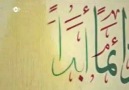 ائماً أبداً